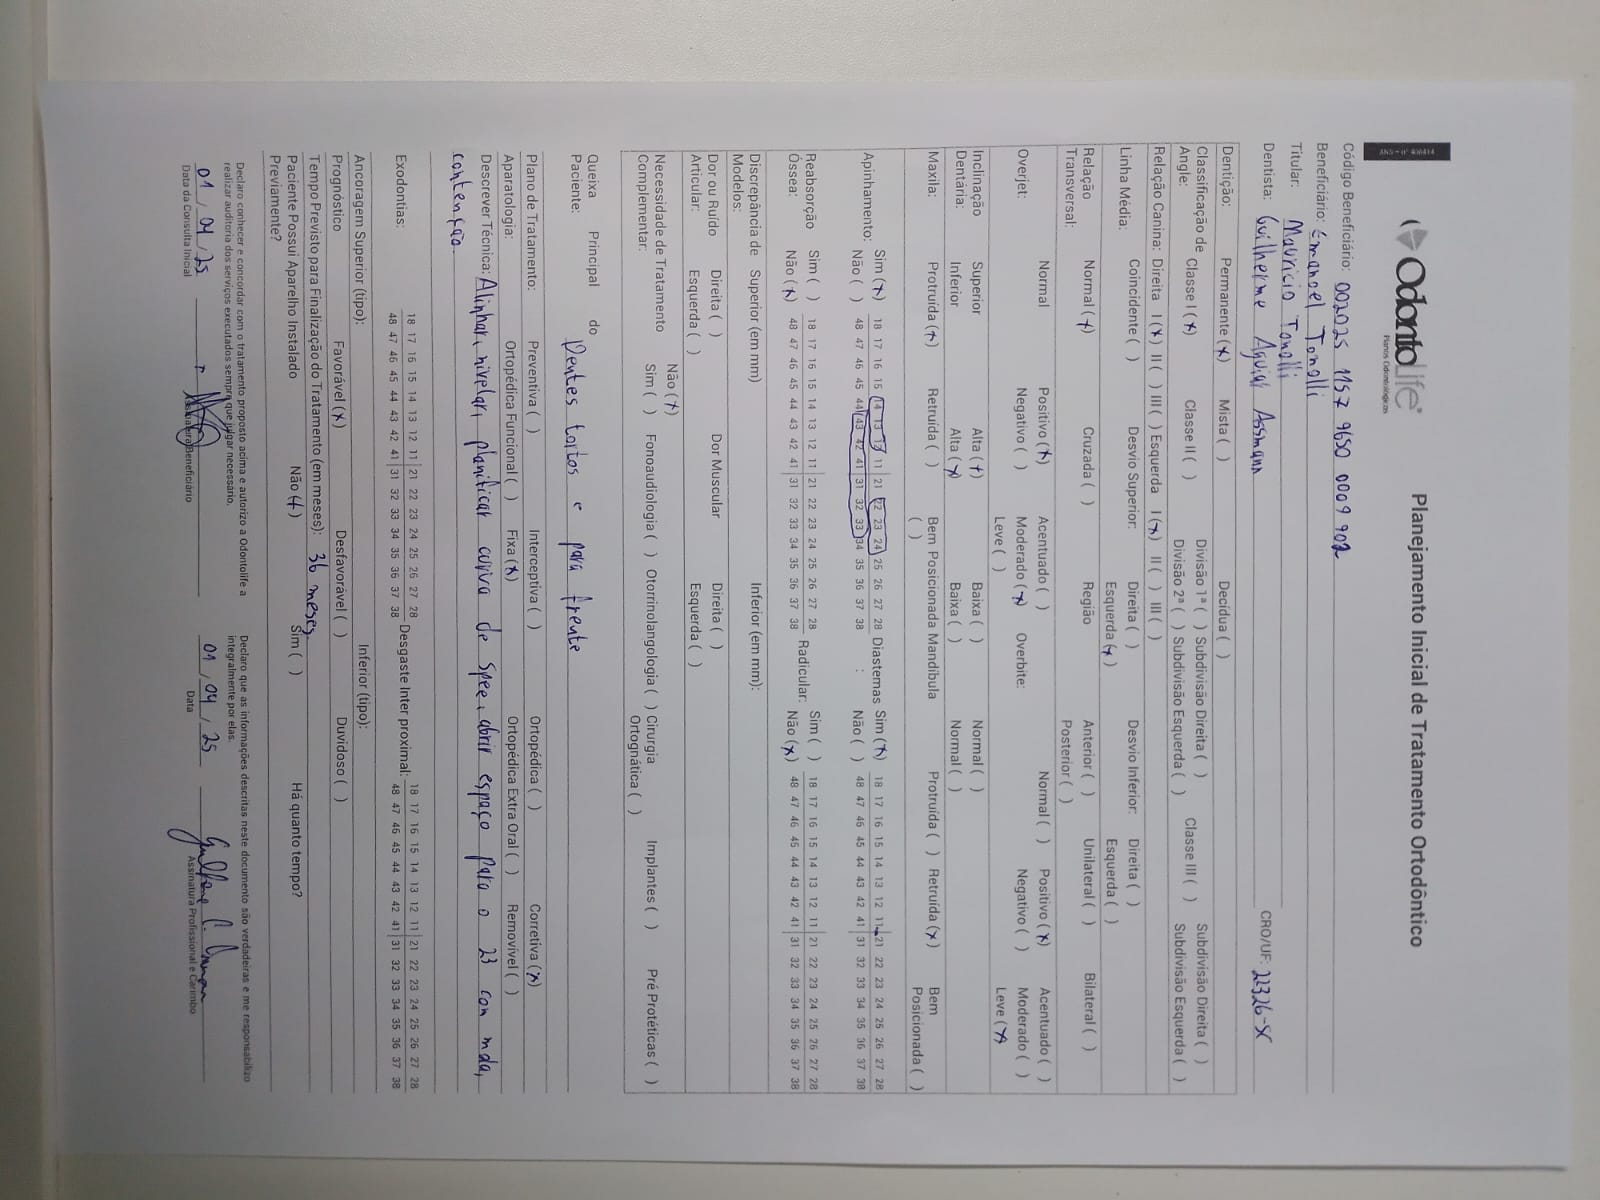 ANS - nº 406414
Odontolife
Planos Odontológicos
Planejamento Inicial de Tratamento Ortodôntico
Código Beneficiário: 002025 1157 9650 0009 902
Beneficiário: Emanoel Tonolli
Titular: Mauricio Tonolli
Dentista: Guilherme Aguiar Assmann CRO/UF: 22326-SC
Dentição: Permanente (x) Mista ( ) Decídua ( )
Classificação de Angle: Classe I (x) Classe II ( ) Divisão 1ª ( ) Subdivisão Direita ( ) Classe III ( ) Subdivisão Direita ( )
Divisão 2ª ( ) Subdivisão Esquerda ( ) Subdivisão Esquerda ( )
Relação Canina: Direita I (x) II ( ) III ( ) Esquerda I (x) II ( ) III ( )
Linha Média: Coincidente ( ) Desvio Superior: Direita ( ) Desvio Inferior: Direita ( )
Esquerda (x) Esquerda ( )
Relação Transversal: Normal (x) Cruzada ( ) Região Anterior ( ) Unilateral ( ) Bilateral ( )
Posterior ( )
Overjet: Normal Positivo (x) Acentuado ( ) Overbite: Normal ( ) Positivo (x) Acentuado ( )
Negativo ( ) Moderado (x) Negativo ( ) Moderado ( )
Leve ( ) Leve (x)
Inclinação Dentária: Superior Alta (x) Baixa ( ) Normal ( )
Inferior Alta (x) Baixa ( ) Normal ( )
Maxila: Protruída (x) Retruída ( ) Bem Posicionada ( ) Mandíbula Protruída ( ) Retruída (x) Bem Posicionada ( )
Apinhamento: Sim (x) 18 17 16 15 14 13 12 11 21 22 23 24 25 26 27 28 Diastemas: Sim (x) 18 17 16 15 14 13 12 11 21 22 23 24 25 26 27 28
Não ( ) 48 47 46 45 44 43 42 41 31 32 33 34 35 36 37 38 Não ( ) 48 47 46 45 44 43 42 41 31 32 33 34 35 36 37 38
Reabsorção Óssea: Sim ( ) 18 17 16 15 14 13 12 11 21 22 23 24 25 26 27 28 Radicular: Sim ( ) 18 17 16 15 14 13 12 11 21 22 23 24 25 26 27 28
Não (x) 48 47 46 45 44 43 42 41 31 32 33 34 35 36 37 38 Não (x) 48 47 46 45 44 43 42 41 31 32 33 34 35 36 37 38
Discrepância de Modelos: Superior (em mm) Inferior (em mm):
Dor ou Ruído Articular: Direita ( ) Dor Muscular Direita ( )
Esquerda ( ) Esquerda ( )
Necessidade de Tratamento Complementar: Não (x)
Sim ( ) Fonoaudiologia ( ) Otorrinolangologia ( ) Cirurgia Ortognática ( ) Implantes ( ) Pré Protéticas ( )
Queixa Principal do Paciente: Dentes tortos e para frente
Plano de Tratamento: Preventiva ( ) Interceptiva ( ) Ortopédica ( ) Corretiva (x)
Aparatologia: Ortopédica Funcional ( ) Fixa (x) Ortopédica Extra Oral ( ) Removível ( )
Descrever Técnica: Alinhar, nivelar, planificar curva de Spee, abrir espaço para o 23 com mola,
contenção.
Exodontias: 18 17 16 15 14 13 12 11 21 22 23 24 25 26 27 28 Desgaste Inter proximal: 18 17 16 15 14 13 12 11 21 22 23 24 25 26 27 28
48 47 46 45 44 43 42 41 31 32 33 34 35 36 37 38 48 47 46 45 44 43 42 41 31 32 33 34 35 36 37 38
Ancoragem Superior (tipo): Inferior (tipo):
Prognóstico Favorável (x) Desfavorável ( ) Duvidoso ( )
Tempo Previsto para Finalização do Tratamento (em meses): 36 meses
Paciente Possui Aparelho Instalado Previamente? Não (x) Sim ( ) Há quanto tempo?
Declaro conhecer e concordar com o tratamento proposto acima e autorizo a Odontolife a
realizar auditoria dos serviços executados sempre que julgar necessário.
01 / 04 / 25
Data da Consulta Inicial
Assinatura Beneficiário
Declaro que as informações descritas neste documento são verdadeiras e me responsabilizo
integralmente por elas.
01 / 04 / 25
Data
Assinatura Profissional e Carimbo